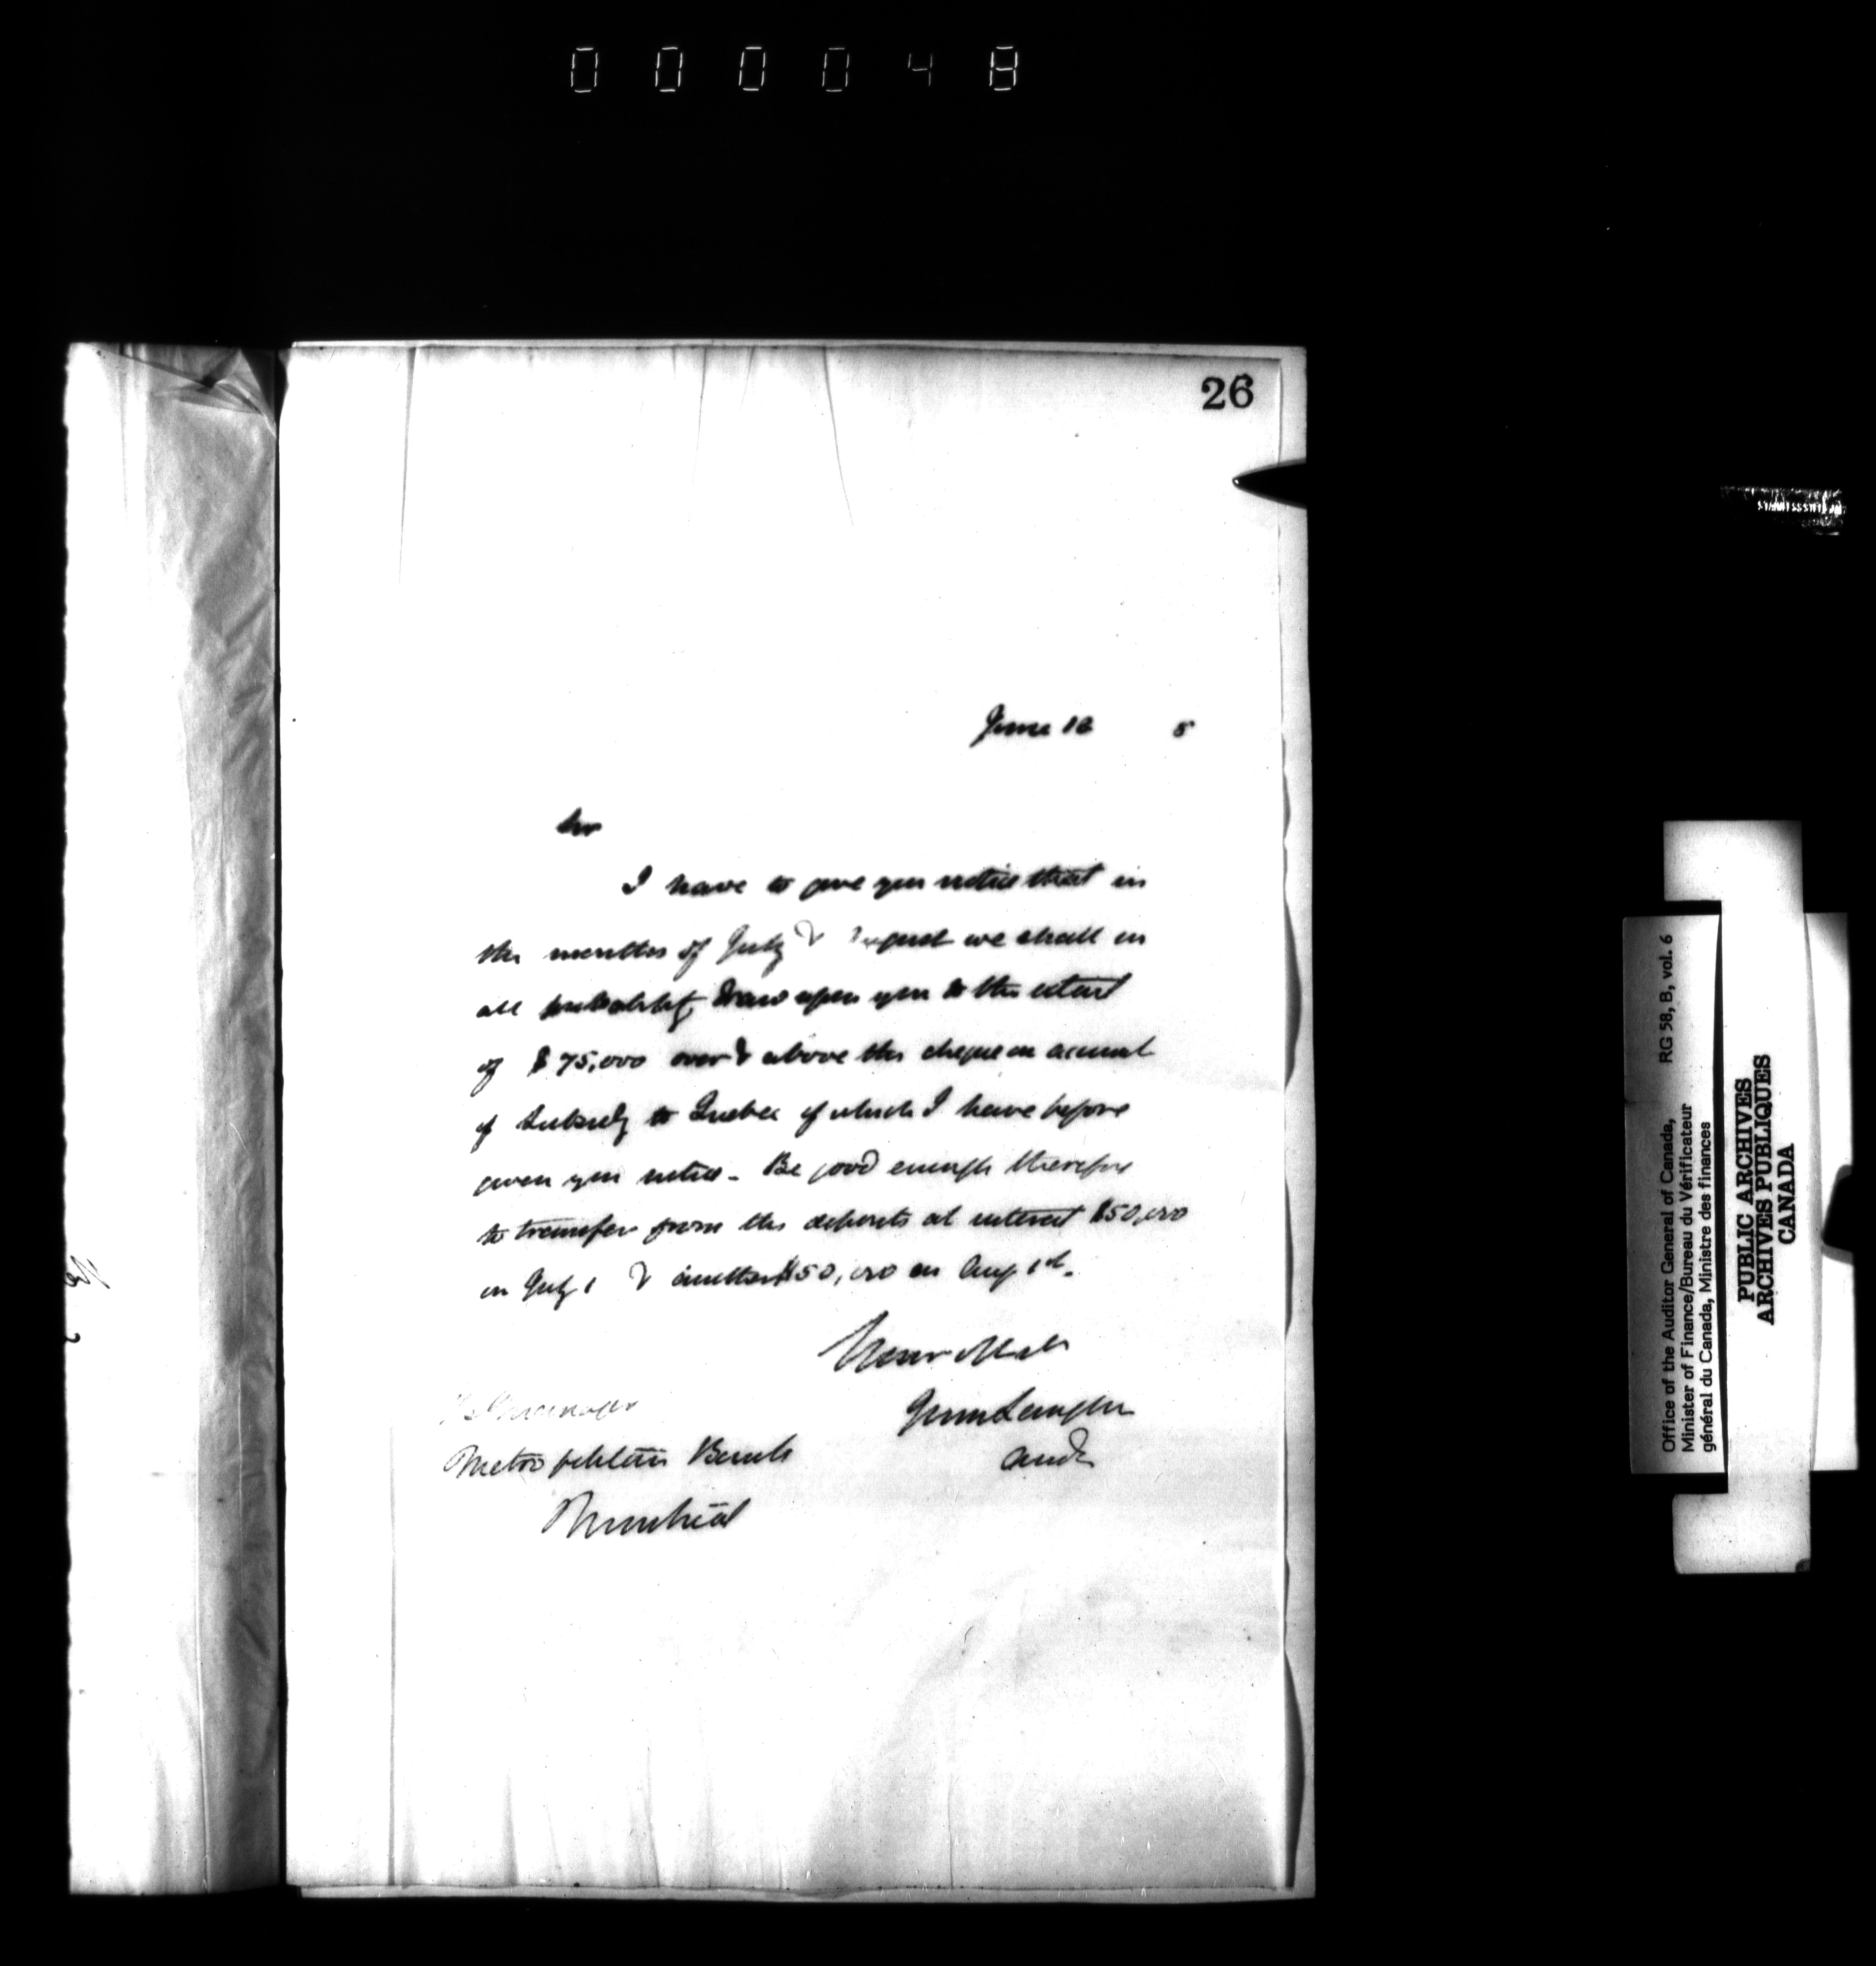 000048
26
June 12 5
Sir
I have to give you notice that in
the months of July & August we shall in
all probability draw upon you to the extent
of $75,000 over & above the cheque on account
of Subsidy to Quebec of which I have before
given you notice - Be good enough therefore
to transfer from the deposits at interest $50,000
on July 1 & another $50,000 on Aug 1st.
John Langton
Aud
The Manager
Metropolitan Bank
Montreal
Office of the Auditor General of Canada, RG 58, B, vol. 6
Minister of Finance/Bureau du Vérificateur
général du Canada, Ministre des finances
PUBLIC ARCHIVES
ARCHIVES PUBLIQUES
CANADA